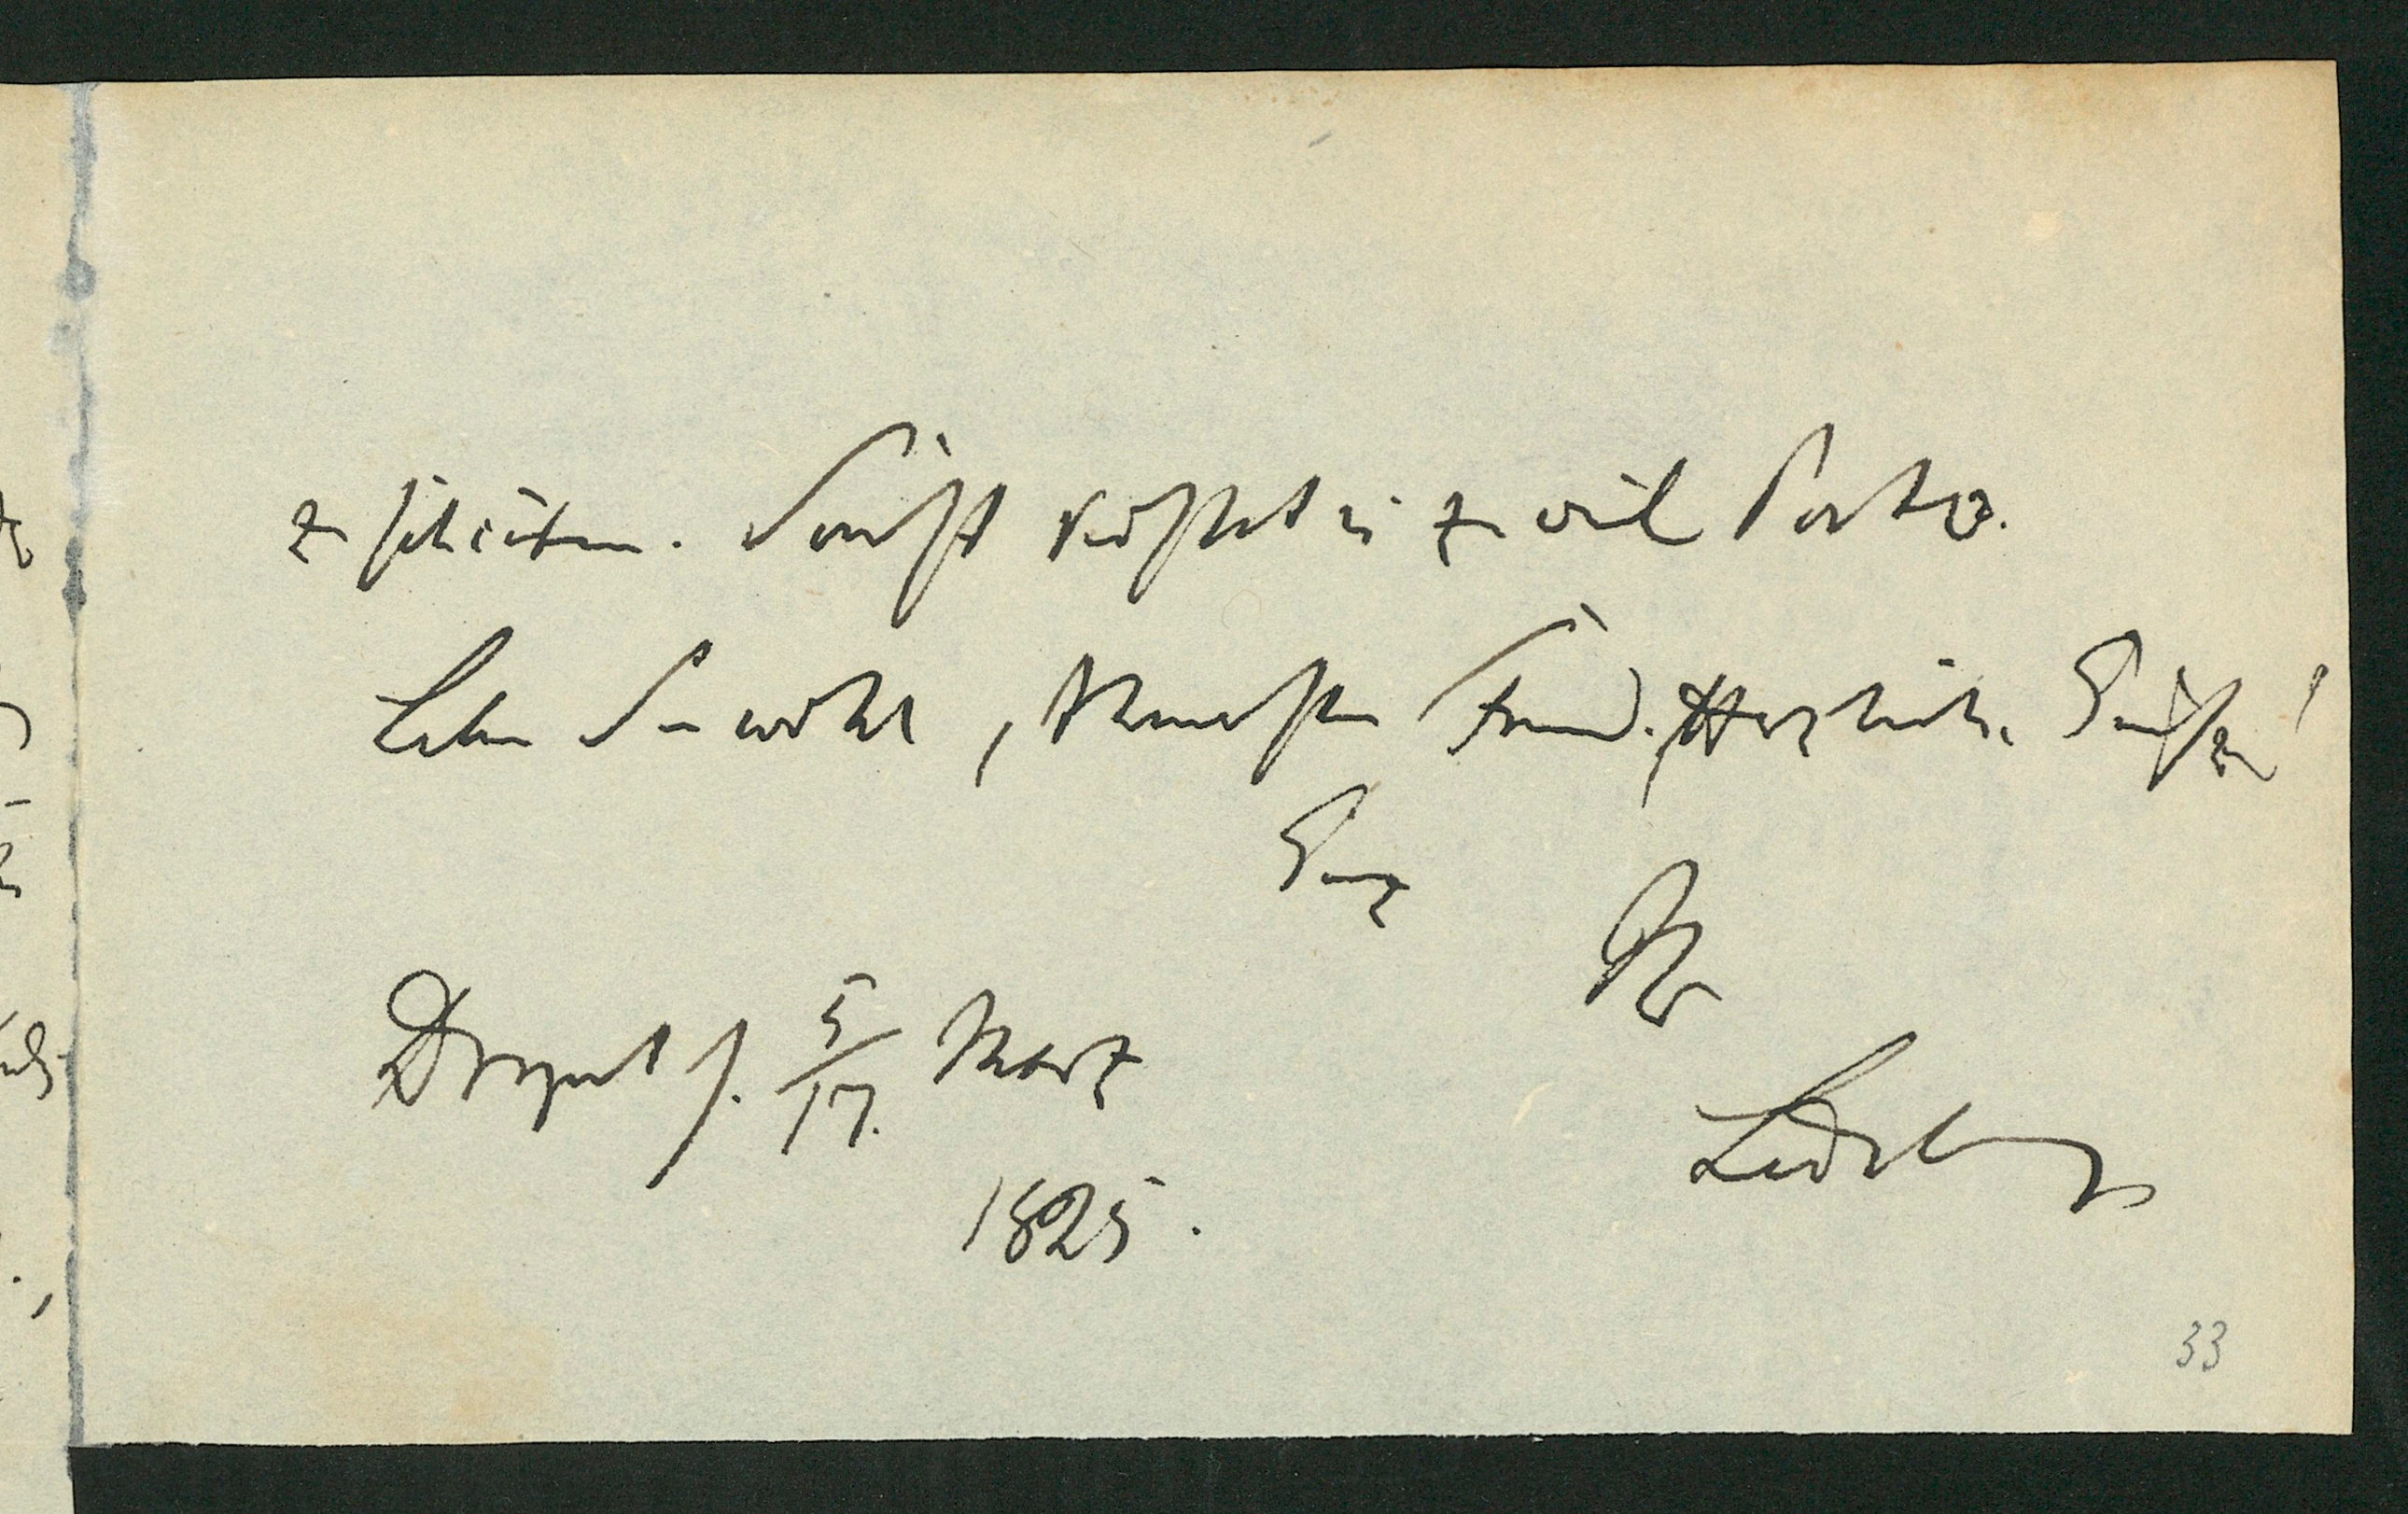 zu schicken. Sonst kostet es zu viel Porto.
Leben Sie wohl, theuerster Freund. Herzliche Grüße!
Ganz
Ihr
Dorpat d. 5/17. März
Ledebour
1825.
33